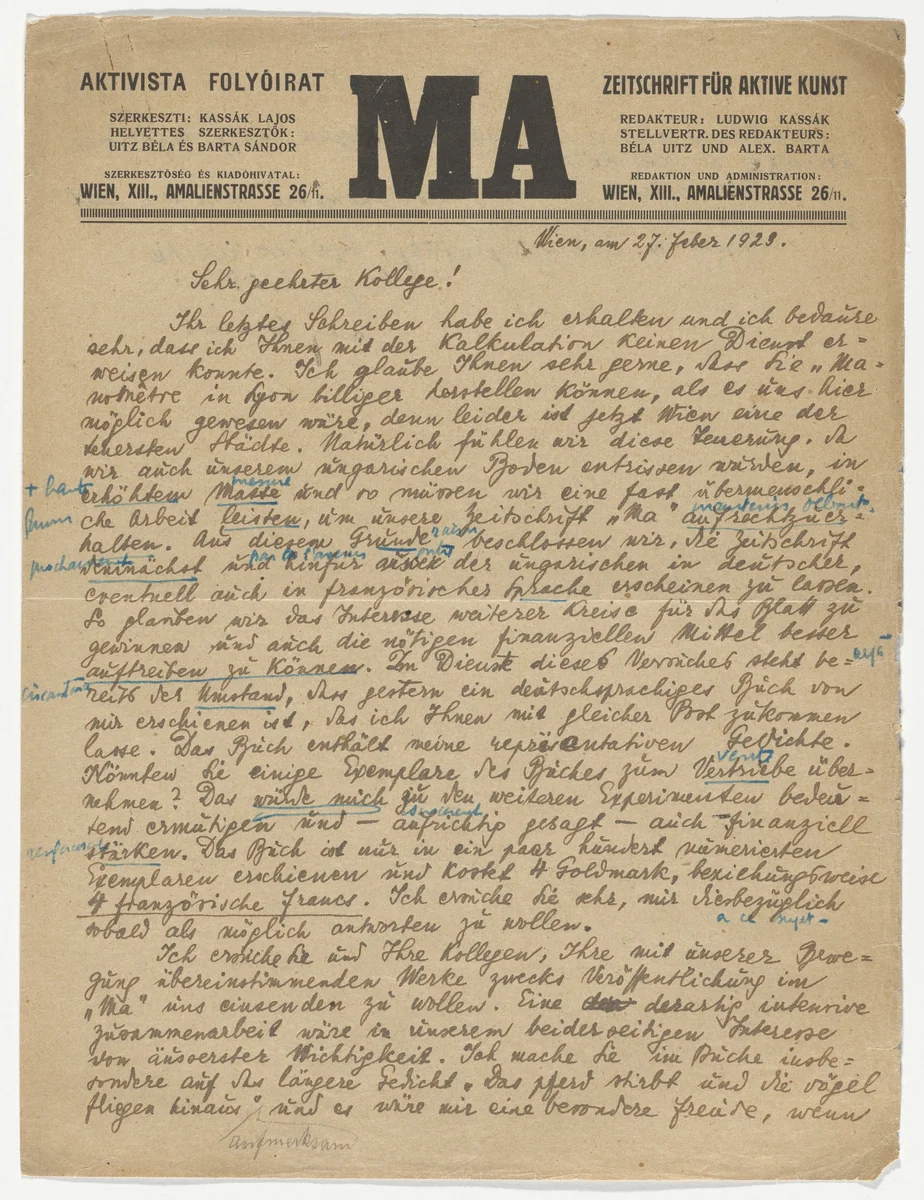 AKTIVISTA FOLYÓIRAT
SZERKESZTI: KASSÁK LAJOS
HELYETTES SZERKESZTŐK:
UITZ BÉLA ÉS BARTA SÁNDOR
SZERKESZTÖSÉG ÉS KIADÓHIVATAL:
WIEN, XIII., AMALIENSTRASSE 26/11.
MA
ZEITSCHRIFT FÜR AKTIVE KUNST
REDAKTEUR: LUDWIG KASSÁK
STELLVERTR. DES REDAKTEURS:
BÉLA UITZ UND ALEX. BARTA
REDAKTION UND ADMINISTRATION:
WIEN, XIII., AMALIENSTRASSE 26/11.
Wien, am 27. Feber 1923.
Sehr geehrter Kollege!
Ihr letztes Schreiben habe ich erhalten und ich bedaure
sehr, dass ich Ihnen mit der Kalkulation keinen Dienst er=
weisen konnte. Ich glaube Ihnen sehr gerne, dass Sie „Ma=
nomètre in Lyon billiger herstellen können, als es uns hier
möglich gewesen wäre, denn leider ist jetzt Wien eine der
teuersten Städte. Natürlich fühlen wir diese Teuerung, da
wir auch unserem ungarischen Boden entrissen wurden, in
+ haut
erhöhtem Masse und so müssen wir eine fast übermenschli=
mesure
che Arbeit leisten, um unsere Zeitschrift „Ma" aufrechtzuer=
halten. Aus diesem Grunde beschlossen wir, die Zeitschrift
raison
demnächst und hinfür ausser der ungarischen in deutscher,
eventuell auch in französischer Sprache erscheinen zu lassen.
So glauben wir das Interesse weiterer Kreise für das Blatt zu
gewinnen und auch die nötigen finanziellen Mittel besser
auftreiben zu können. Im Dienste dieses Versuches steht be=
reits der Umstand, dass gestern ein deutschsprachiges Buch von
mir erschienen ist, das ich Ihnen mit gleicher Post zukommen
lasse. Das Buch enthält meine repräsentativen Gedichte.
Könnten Sie einige Exemplare des Buches zum Vertriebe über=
vente
nehmen? Das würde mich zu den weiteren Experimenten bedeu=
tend ermutigen und — aufrichtig gesagt — auch finanziell
stärken. Das Buch ist nur in ein paar hundert numerierten
Exemplaren erschienen und kostet 4 Goldmark, beziehungsweise
4 französische Francs. Ich ersuche Sie sehr, mir diesbezüglich
sobald als möglich antworten zu wollen.
à ce sujet
Ich ersuche Sie und Ihre Kollegen, Ihre mit unserer Bewe=
gung übereinstimmenden Werke zwecks Veröffentlichung im
„Ma" uns einsenden zu wollen. Eine derartig intensive
Zusammenarbeit wäre in unserem beiderseitigen Interesse
von äusserster Wichtigkeit. Ich mache Sie im Buche insbe=
sondere auf das längere Gedicht „Das Pferd stirbt und die Vögel
fliegen hinaus" und es wäre mir eine besondere Freude, wenn
aufmerksam